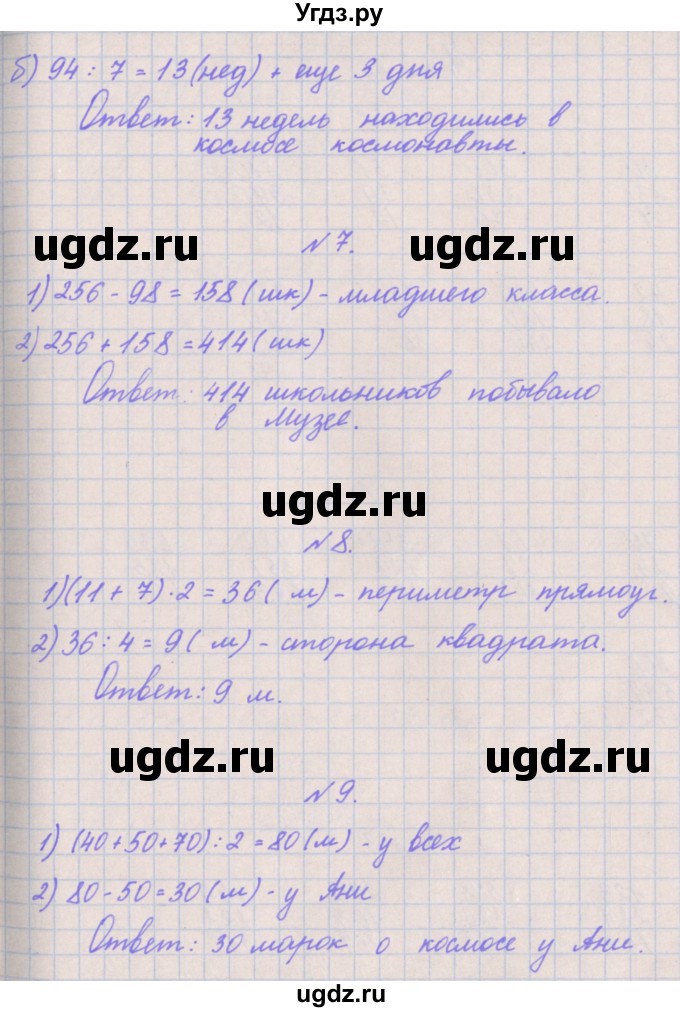 Угдз.ру
б) 94 : 7 = 13 (нед) + еще 3 дня
Ответ: 13 недель находились в
космосе космонавты.
ugdz.ru №7. ugdz.ru
1) 256 - 98 = 158 (шк) - младшего класса.
2) 256 + 158 = 414 (шк)
Ответ: 414 школьников побывало
в Музее.
ugdz.ru
№8.
1) (11 + 7) · 2 = 36 ( м) - периметр прямоуг.
2) 36 : 4 = 9 ( м) - сторона квадрата.
Ответ: 9 м.
ugdz.ru ugdz.ru
№9.
1) (40 + 50 + 70) : 2 = 80 (м) - у всех
2) 80 - 50 = 30 (м) - у Ани
Ответ: 30 марок о космосе у Ани.
ugdz.ru